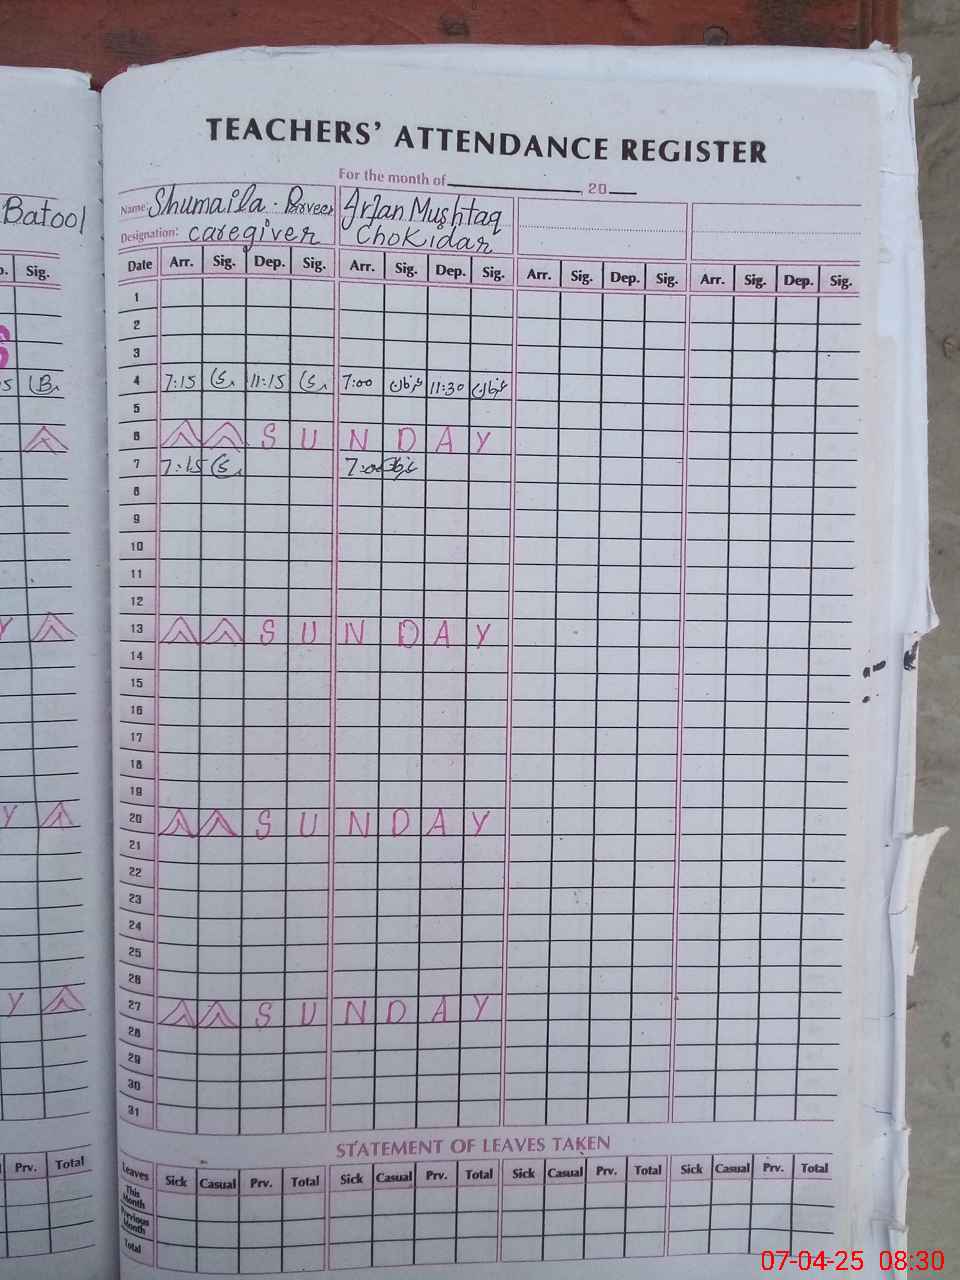 TEACHERS' ATTENDANCE REGISTER
For the month of 20
Batool
Name: Shumaila Parveen Irfan Mushtaq
Designation: caregiver Chokidar
Sig.
Date Arr. Sig. Dep. Sig. Arr. Sig. Dep. Sig. Arr. Sig. Dep. Sig. Arr. Sig. Dep. Sig.
1
2
3
4 7:15 11:15 7:00 عرفان 11:30 عرفان
5
6 S U N D A Y
7 7:15 7:00
8
9
10
11
12
Y 13 S U N D A Y
14
15
16
17
18
19
Y 20 S U N D A Y
21
22
23
24
25
26
Y 27 S U N D A Y
28
29
30
31
STATEMENT OF LEAVES TAKEN
Prv. Total
Leaves Sick Casual Prv. Total Sick Casual Prv. Total Sick Casual Prv. Total Sick Casual Prv. Total
This Month
Previous Month
Total
07-04-25 08:30